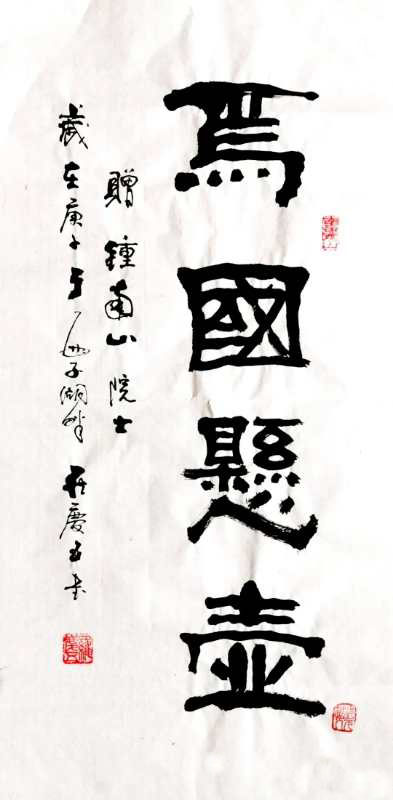 為國懸壺
贈鍾南山院士
歲在庚子于西子湖畔 慶 書